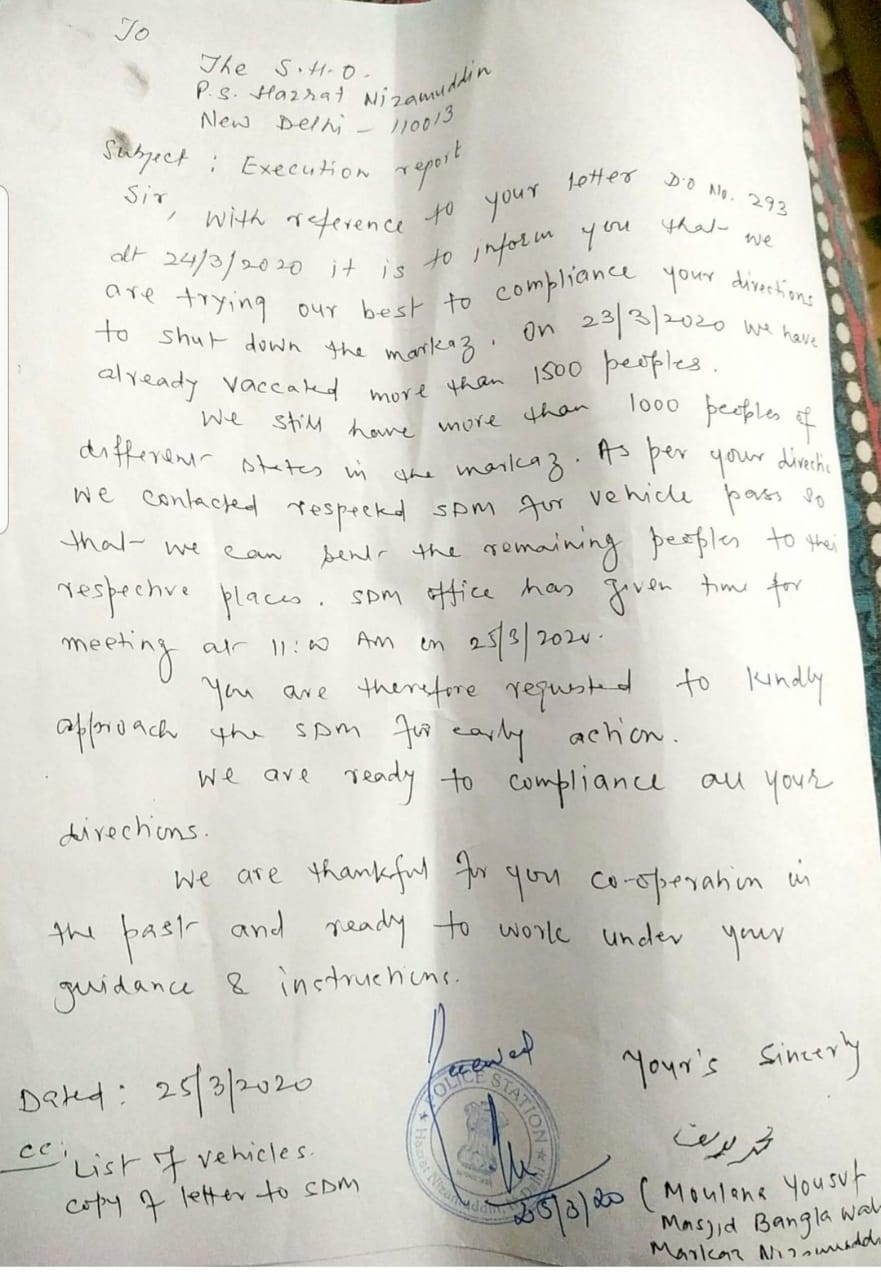 To
The S.H.O.
P.S. Hazrat Nizamuddin
New Delhi - 110013
Subject : Execution report
Sir,
With reference to your letter D.O No. 293
dt 24/3/2020 it is to inform you that we
are trying our best to compliance your directions
to shut down the markaz. On 23/3/2020 we have
already vaccated more than 1500 peoples.
We still have more than 1000 peoples of
different states in the markaz. As per your directi
we contacted respected SDM for vehicle pass so
that we can sent the remaining peoples to thei
respective places. SDM office has given time for
meeting at 11:00 AM on 25/3/2020.
You are therefore requested to kindly
approach the SDM for early action.
We are ready to compliance all your
directions.
We are thankful for you co-operation in
the past and ready to work under your
guidance & instructions.
Your's Sincerly
Dated : 25/3/2020
cc: List of vehicles.
copy of letter to SDM
Received
POLICE STATION
Hazrat Nizamuddin, N. Delhi
25/3/20
محمد یوسف
(Moulana Yousuf
Masjid Bangla Wali
Markaz Nizamuddi